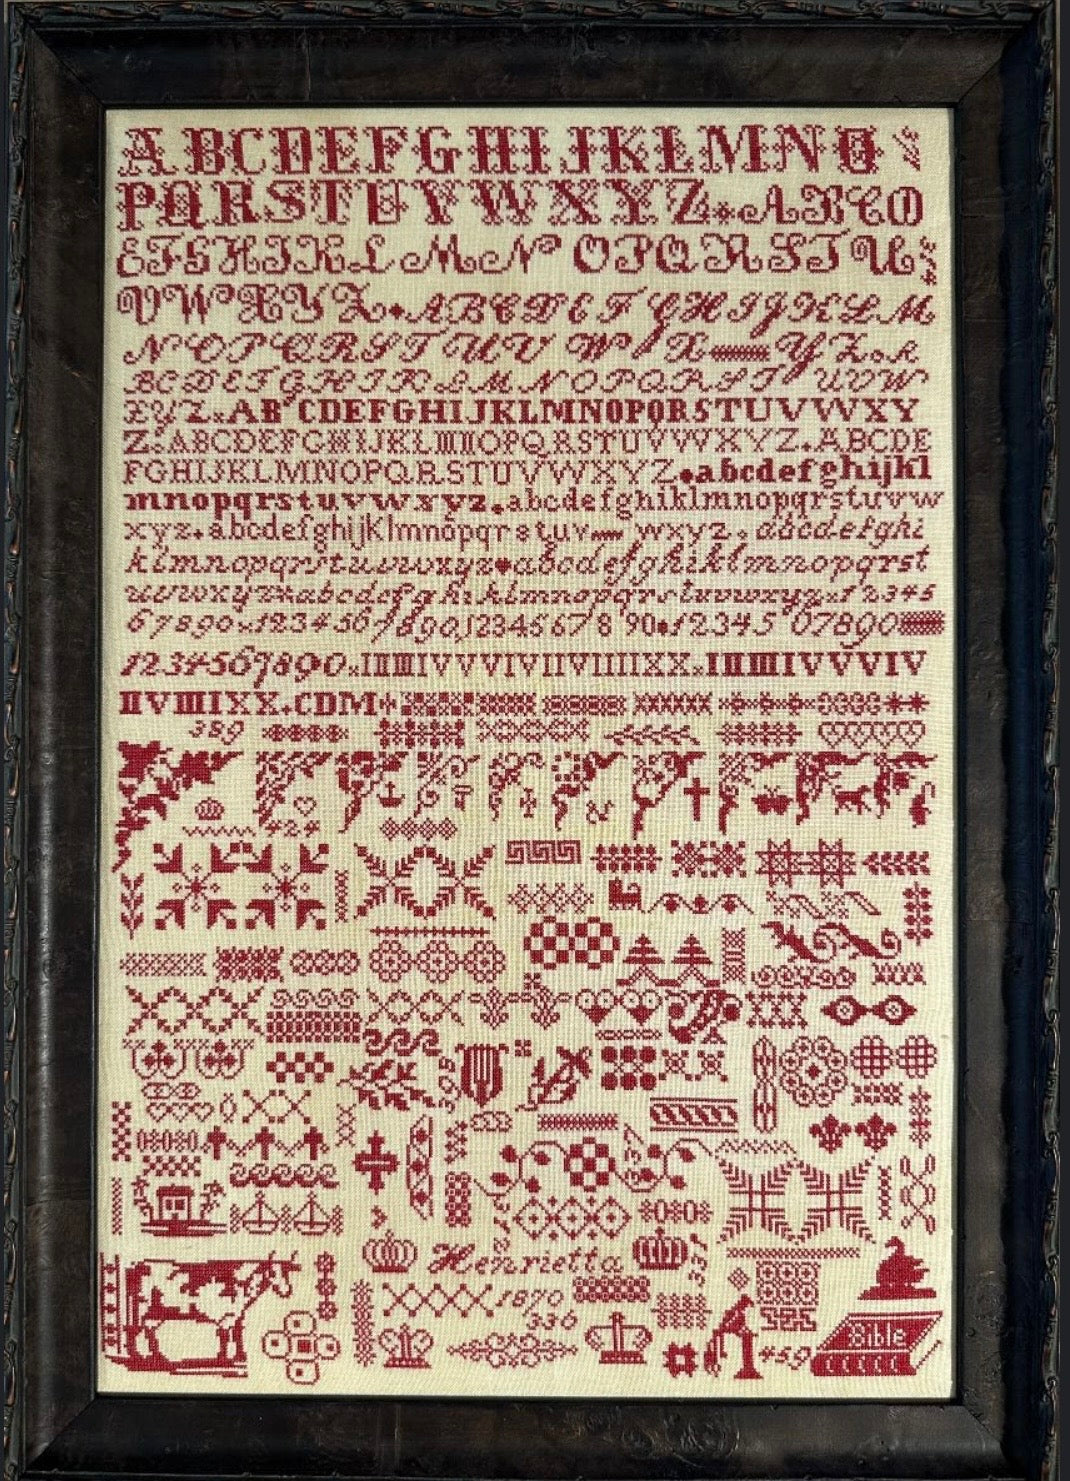 ABCDEFGHIJKLMNO
PQRSTUVWXYZABCD
EFGHIJKLMNOPQRSTU
VWXYZABCDEFGHIJKLM
NOPQRSTUVWXYZA
BCDEFGHIKLMNOPQRSTUVW
XYZABCDEFGHIJKLMNOPQRSTUVWXY
ZABCDEFGHIJKLMNOPQRSTUVWXYZABCDE
FGHIJKLMNOPQRSTUVWXYZabcdefghijkl
mnopqrstuvwxyz.abcdefghiklmnopqrstuvw
xyzabcdefghijKlmnopqrstuvwxyzabcdefghi
klmnopqrstuvwxyzabcdefghiklmnopqrst
uvwxyzabcdefghiklmnopqrstuvwxyz12345
67890123456789012345678901234567890
1234567890IIIIIIIVVVIVIIVIIIIXXIIIIIIIVVVIV
IIVIIIIXXCDM
389
424
395
Henrietta
331
1870
330
Bible
459